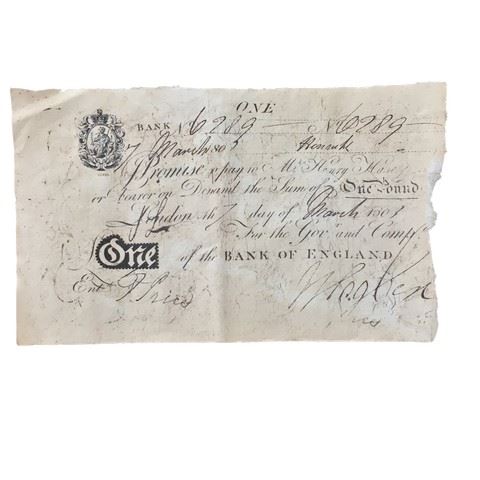 ONE
BANK No 6289 No 6289
7 March
I Promise to pay to Mr Henry Hase
or bearer on Demand the Sum of One Pound
London the 7 day of March
For the Govr and Compa
One of the BANK OF ENGLAND
Entd